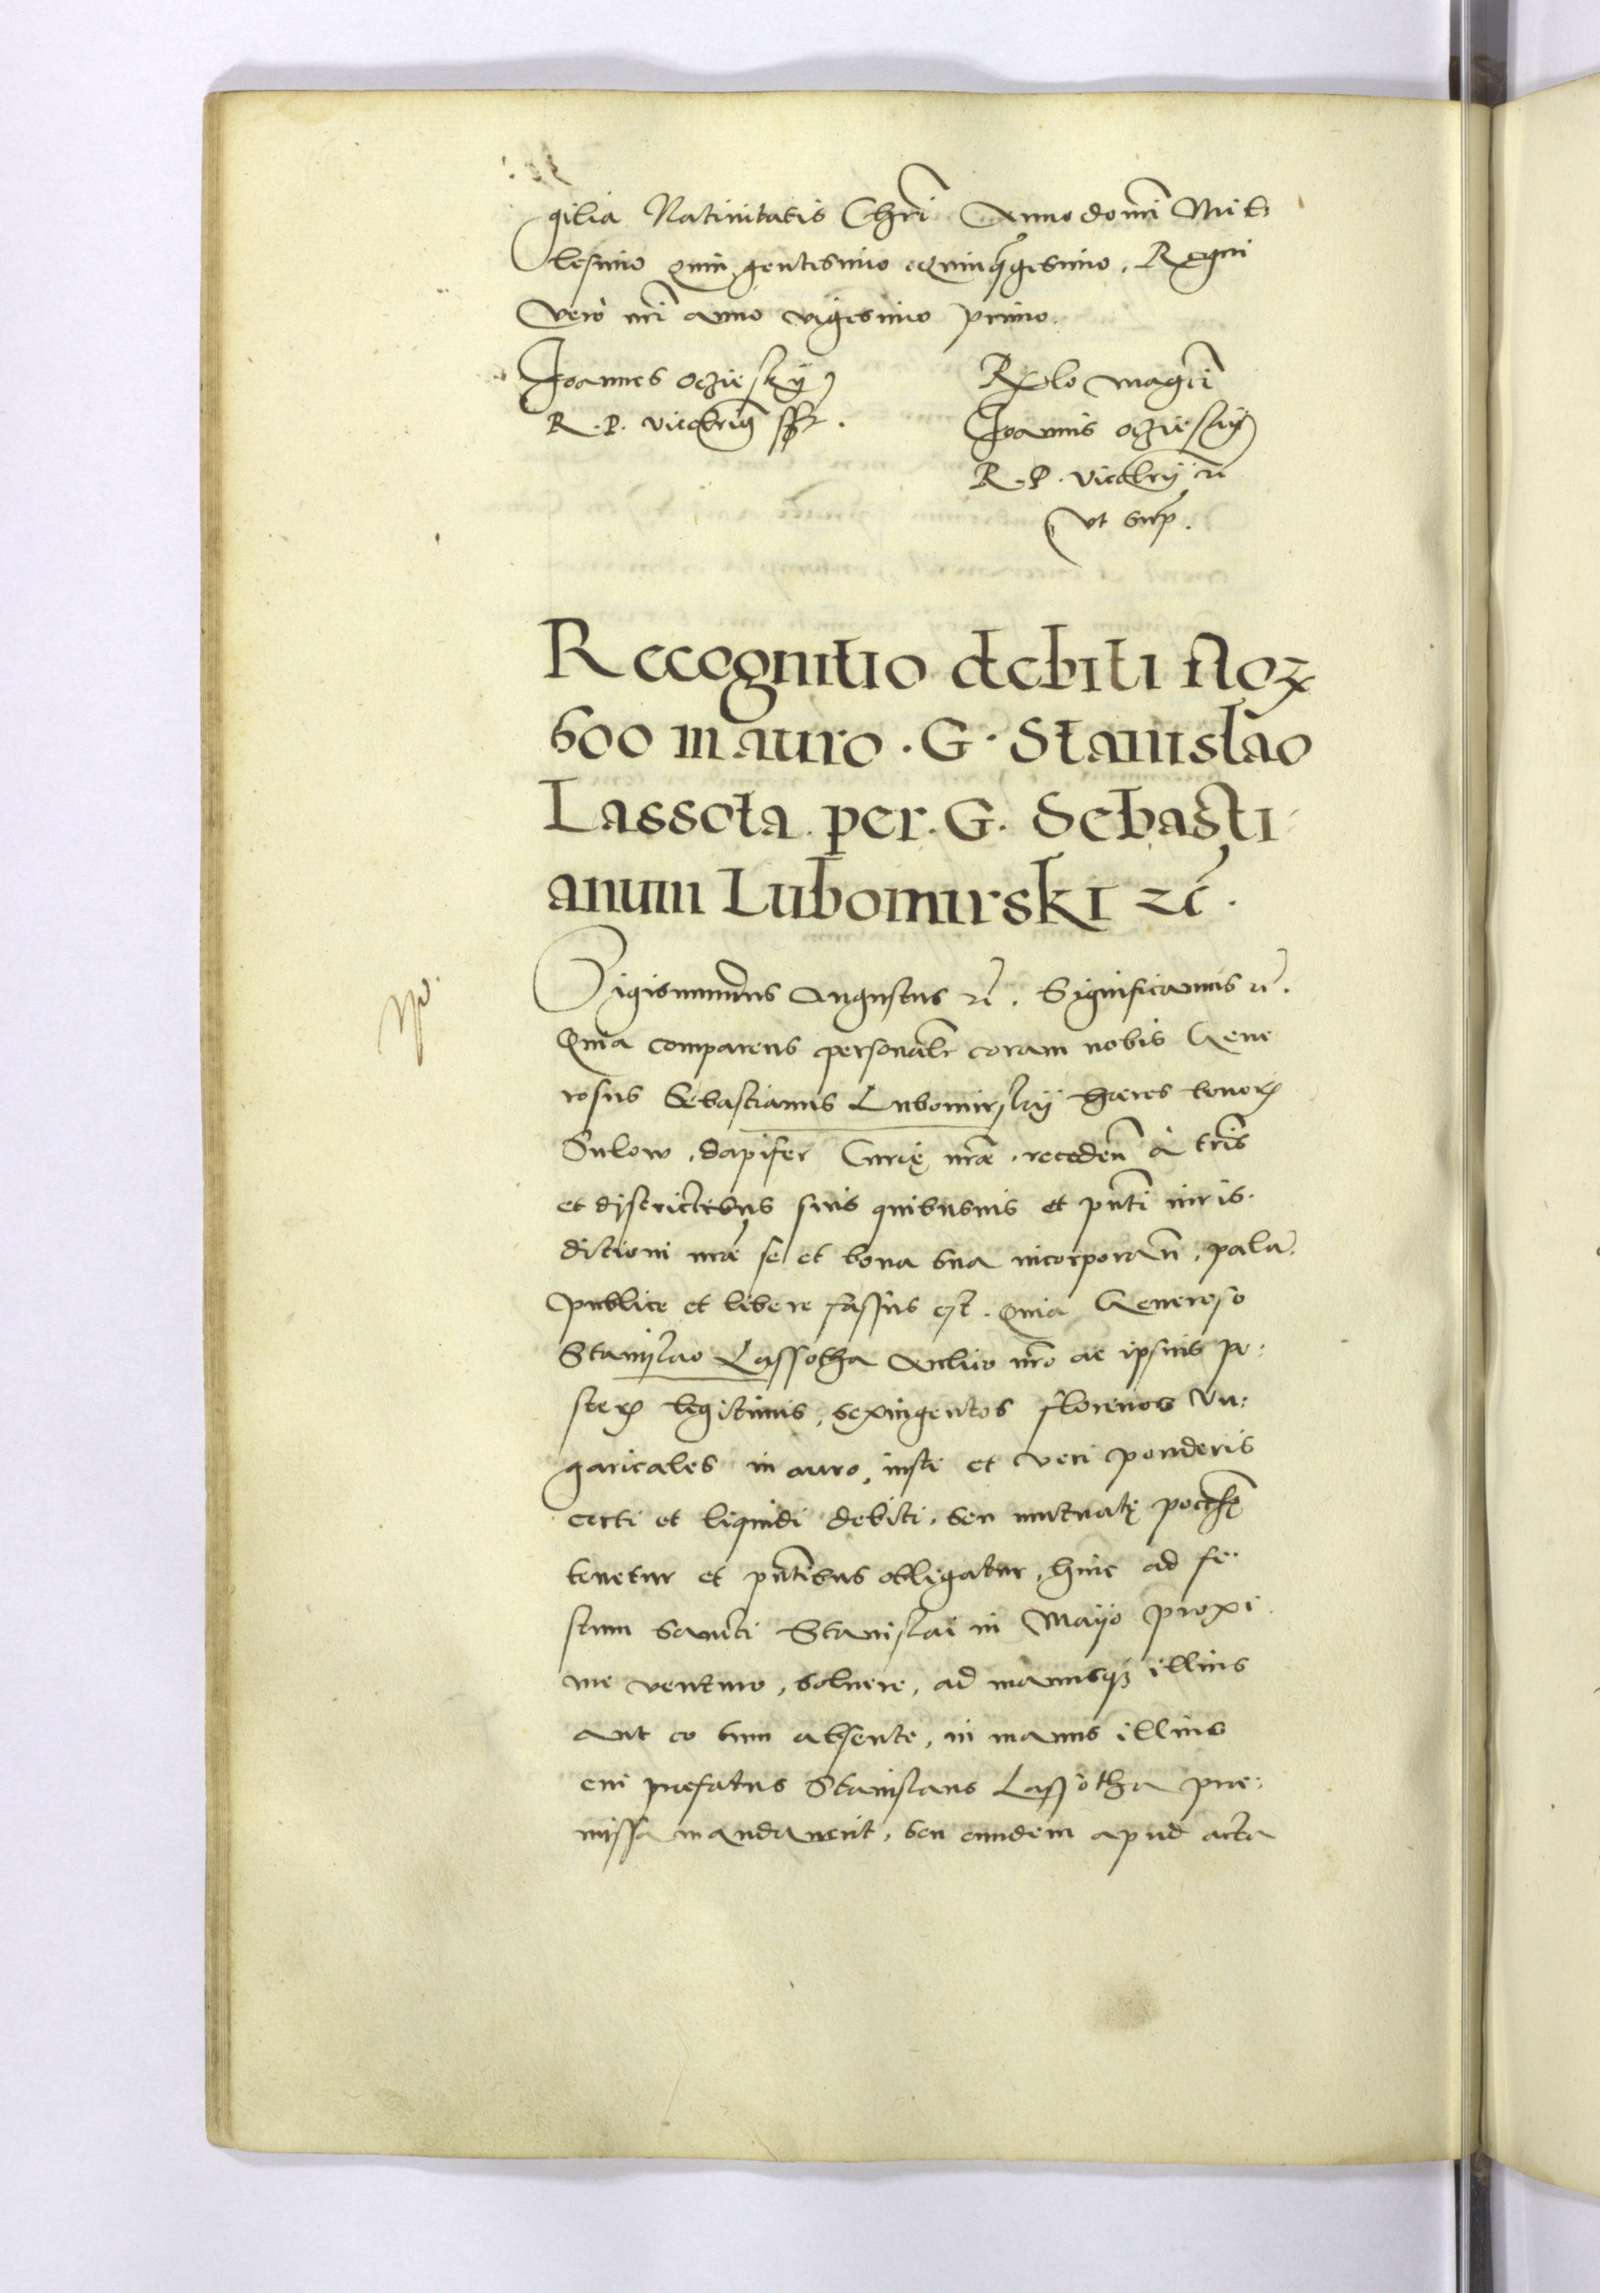 gilia Natiuitatis Chrī Anno domī Mil
lesimo quingentesimo quinqgesimo, Regni
vero nrī anno vigesimo primo.
Joannes Oczieskÿ
R. P. vicecancrius sst.
Rxlo magci
Joannis Oczieskÿ
R. P. vicecancrij rc̄
vt sup.
Recognitio debiti floꝝ
600 in auro. G. Stanislao
Lassota per. G. Sebasti
anum Lubomirski zc̄.
Sigismundus Augustus rc̄. Significamus rc̄.
Quia comparens personalr coram nobis Gene
rosus Sebastianus Lubomirskÿ hæres bonoꝝ
Sulow, dapifer Curię nræ, recedeñ à tris
et districtibus suis quibusuis et pn̄ti iuris
dictioni nræ se et bona sua incorporañ, palā
publice et libere fassus est. Quia Generoso
Stanislao Lassotha Aulico nrō ac ipsius po:
steꝝ legitimis, sexingentos florenos Vn:
garicales in auro, iusti et veri ponderis
certi et liquidi debiti, seu mutuatę pecunię
tenetur et pn̄tibus obligatur, hinc ad fe:
stum Sancti Stanislai in Maÿo proxi
me venturo, soluere, ad manusqꝫ illius
aut eo tum absente, in manus illius
cui præfatus Stanislaus Lassotha præ:
missa mandauerit, seu eundem apud acta